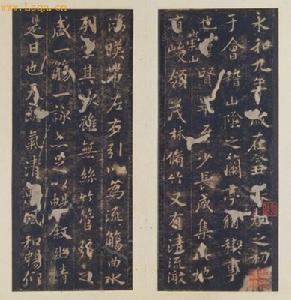 永和九年歲在癸丑暮春之初
于會稽山陰之蘭亭脩稧事
也羣賢畢至少長咸集此地
有崇山
峻領茂林脩竹又有清流激
湍暎帶左右引以為流觴曲水
列坐其次雖無絲竹管弦之
盛一觴一詠亦足以暢敘幽情
是日也天朗氣清惠風和暢仰